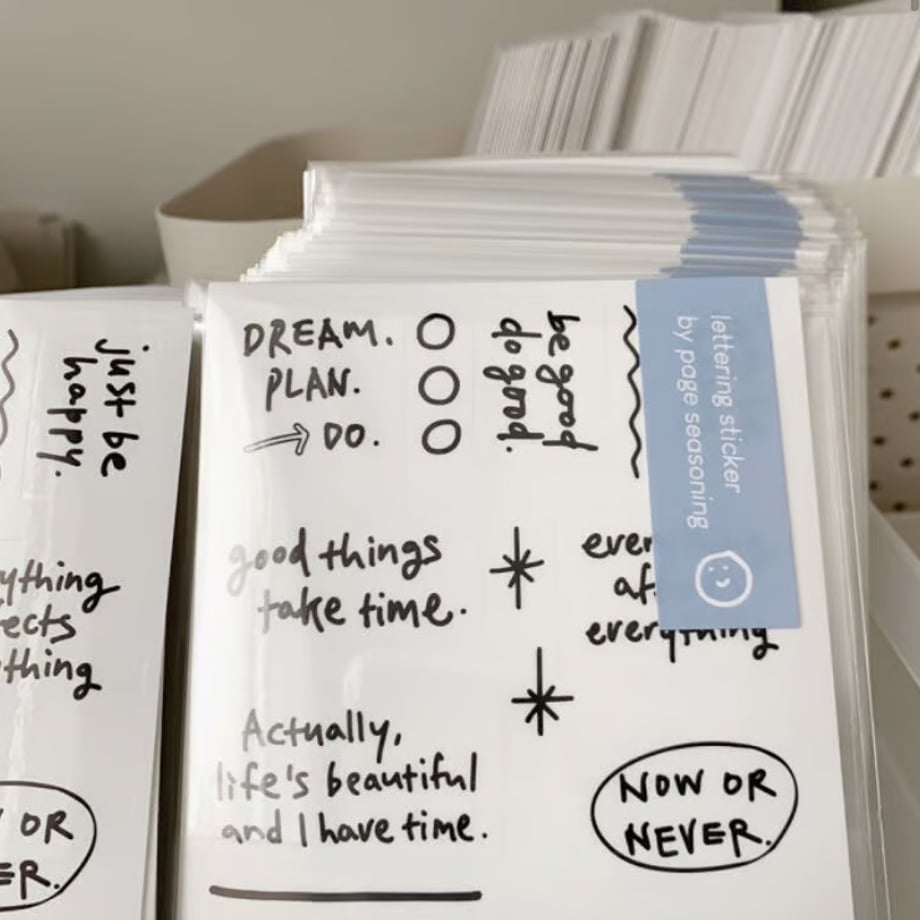 just be
happy.
ything
ects
thing
OR
ER.
DREAM.
PLAN.
DO.
be good
do good.
lettering sticker
by page seasoning
good things
take time.
ever
af
everything
Actually,
life's beautiful
and I have time.
NOW OR
NEVER.